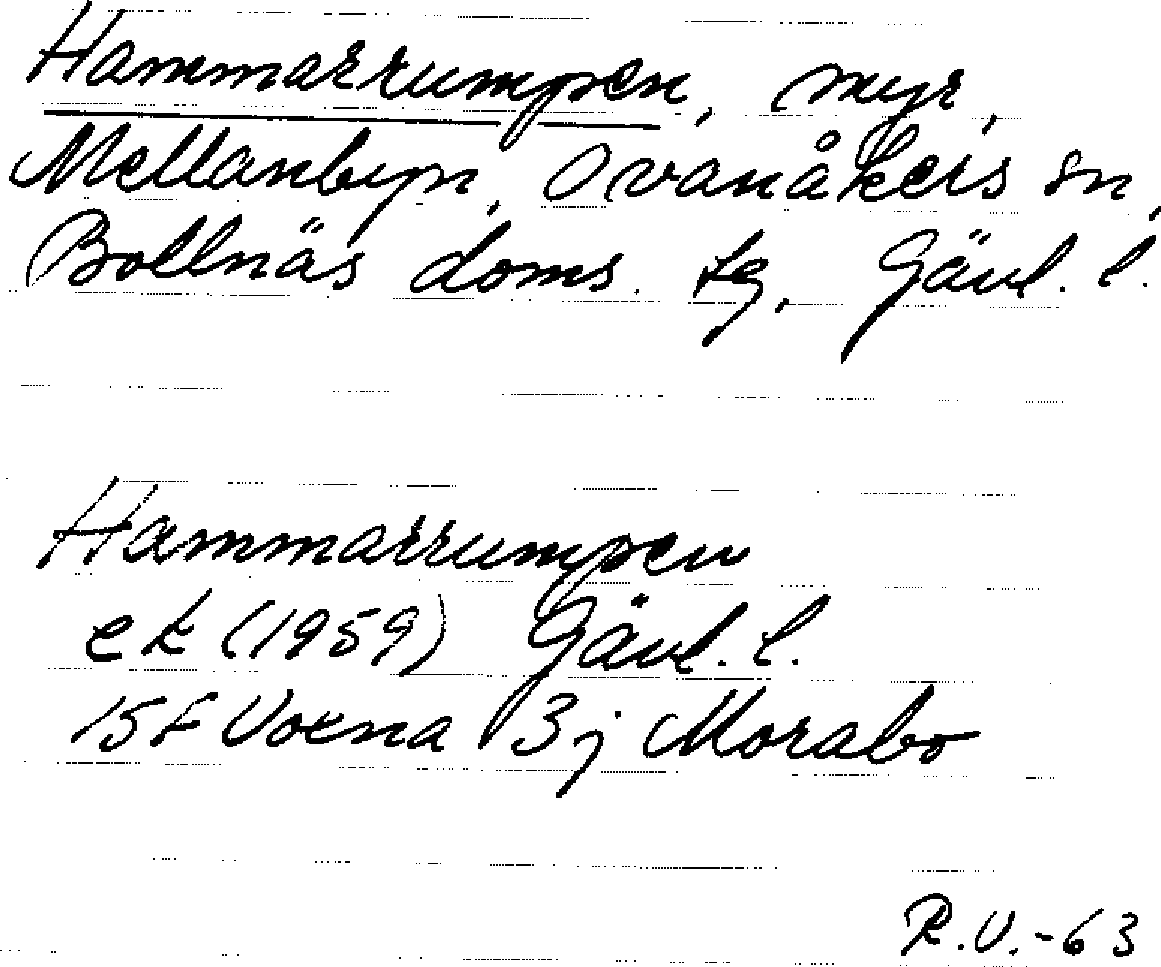 Hammarrumpen, myr,
Mellanbyn, Ovanåkers sn,
Bollnäs doms. tg, Gävl. l.
Hammarrumpen
ek (1959) Gävl. l.
15F Voxna 3j Morabo
R.V.-63